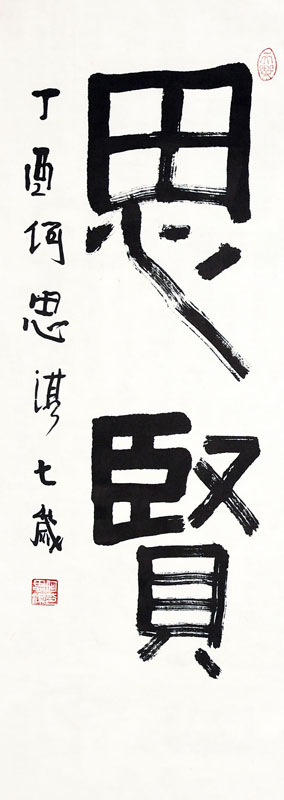 思賢
丁酉何思淇七歲